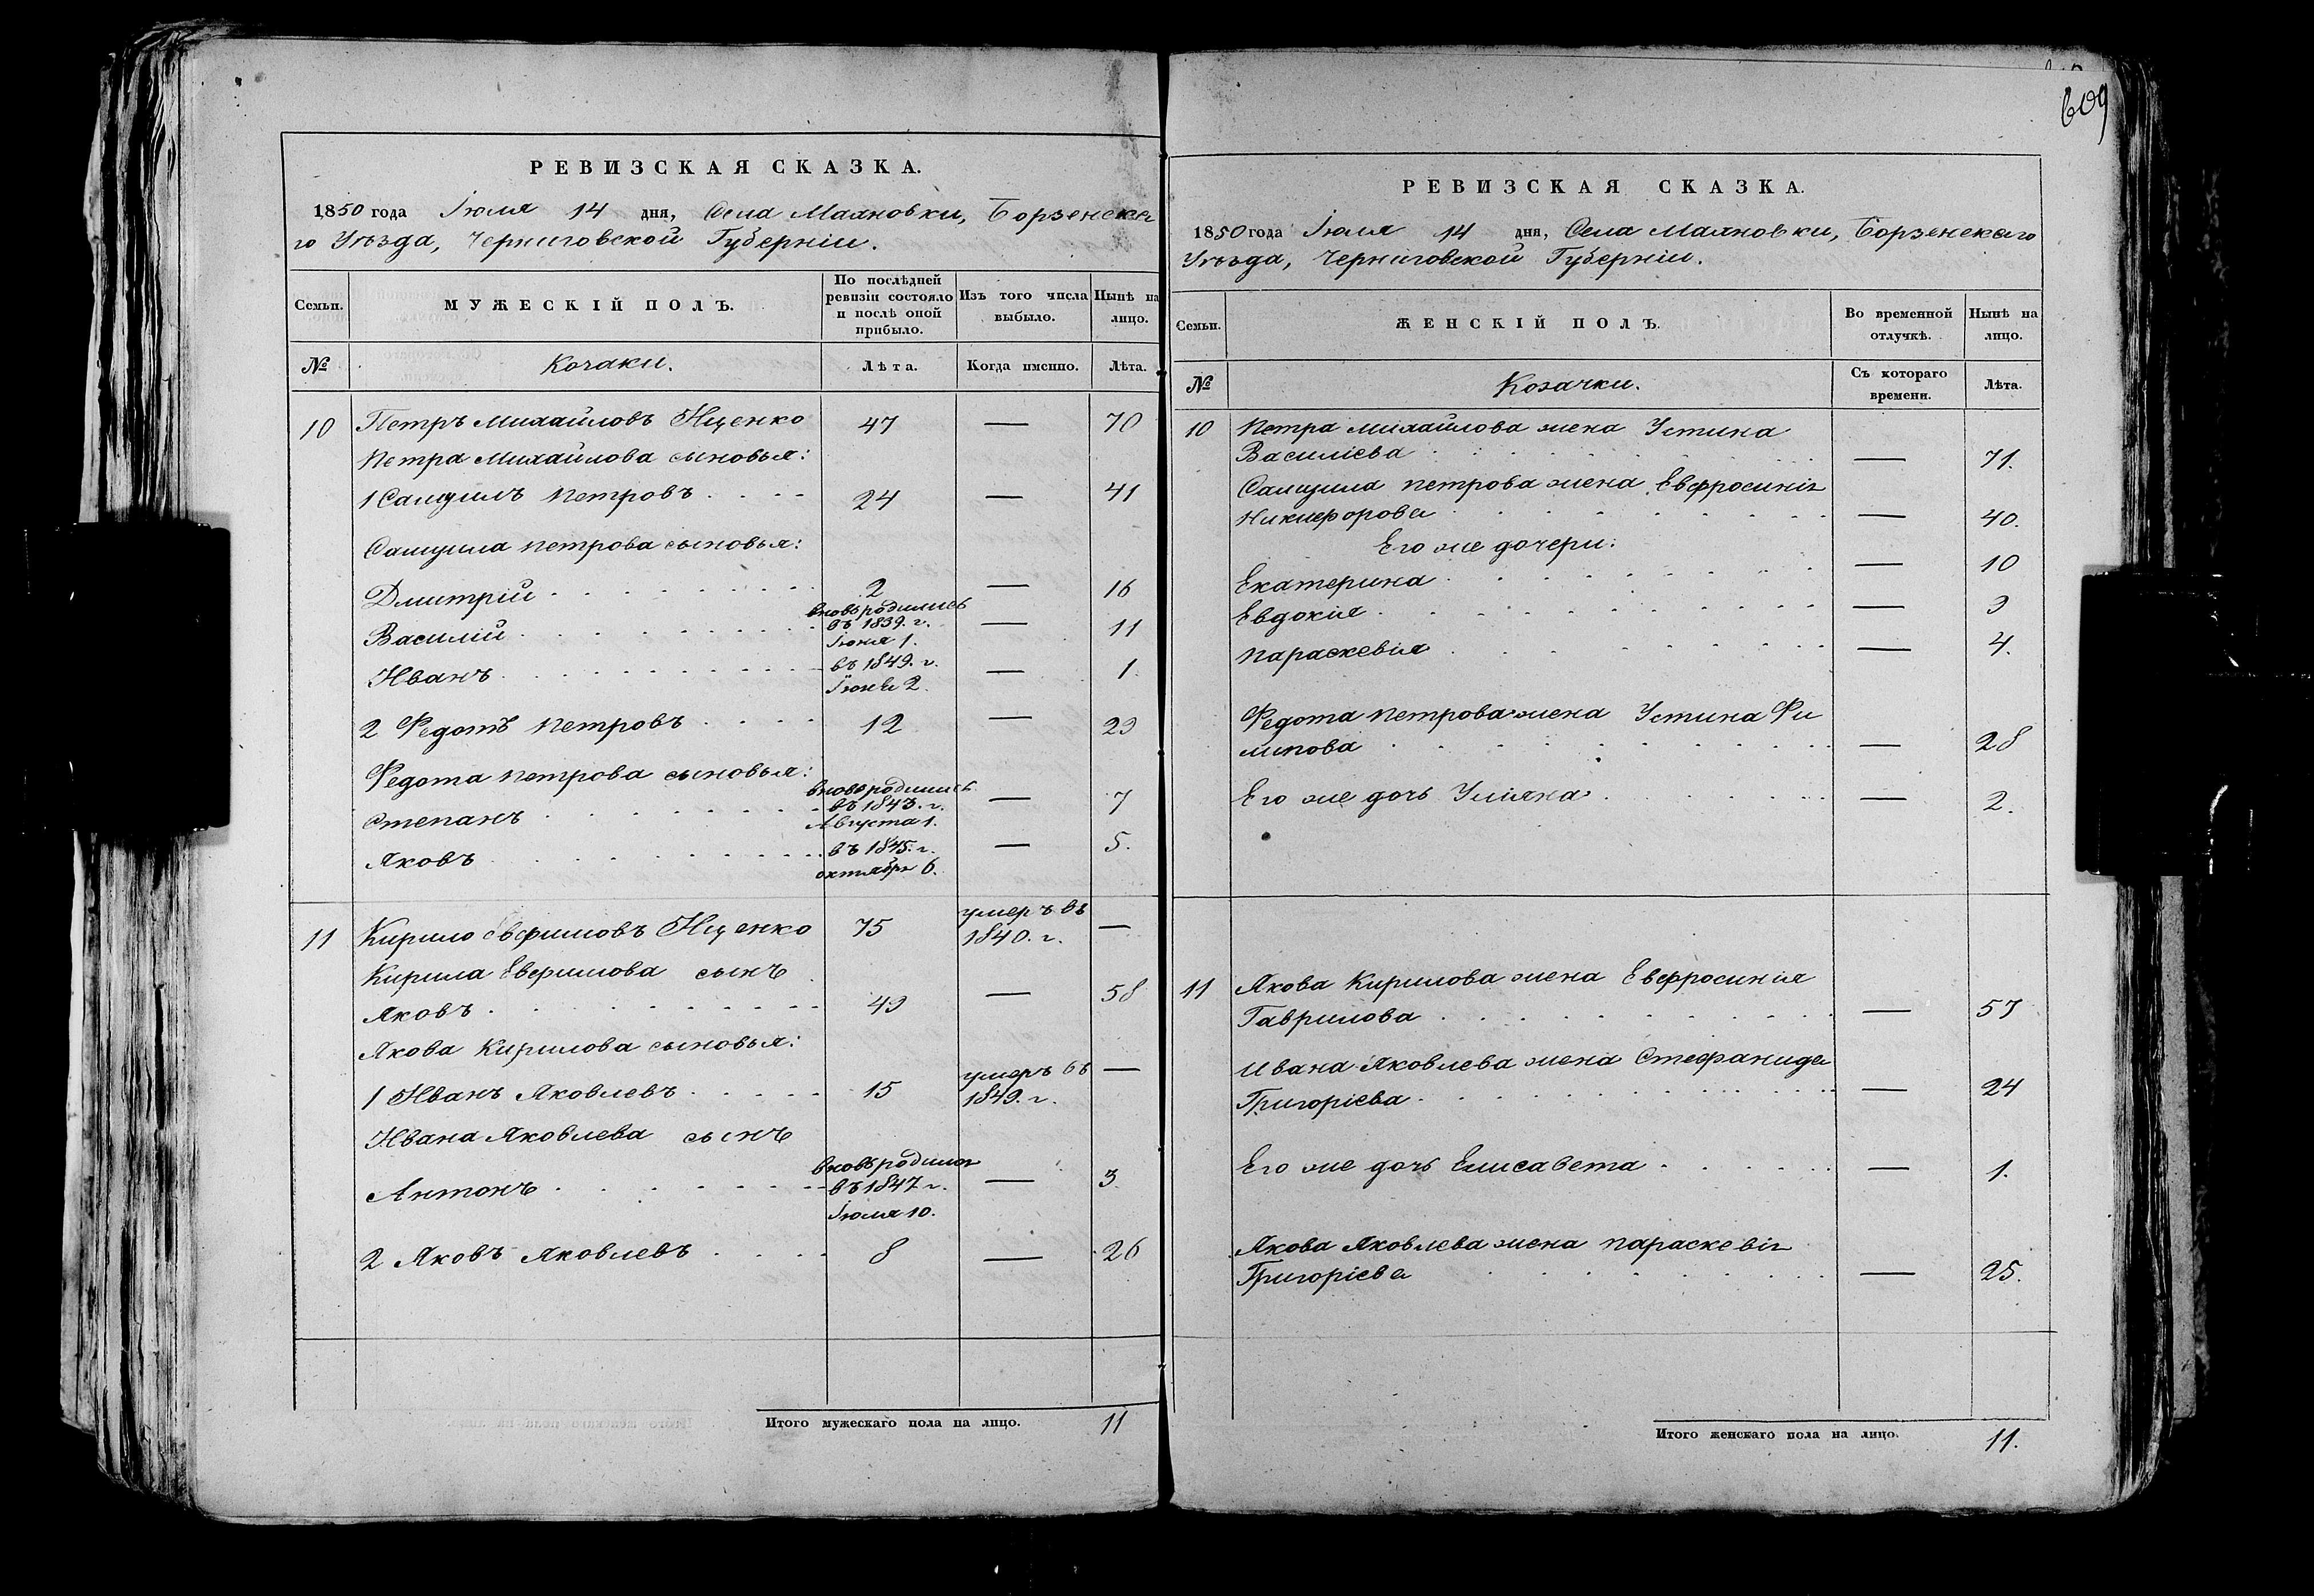 РЕВИЗСКАЯ СКАЗКА.
1850 года Іюля 14 дня, Села Маяновки, Борзенска
го Уѣзда, Черниговской Губерніи.
Семьи. МУЖЕСКІЙ ПОЛЪ. По послѣдней ревизіи состояло и послѣ оной прибыло. Изъ того числа выбыло. Нынѣ на лицо.
№ Козаки. Лѣта. Когда именно. Лѣта.
10 Петръ Михайловъ Ищенко 47 — 70
Петра Михайлова сыновья:
1 Самуилъ Петровъ 24 — 41
Самуила Петрова сыновья:
Дмитрій 2 — 16
Василій вновь родились въ 1839. г. Іюня 1. — 11
Иванъ въ 1849. г. Іюня 2. — 1.
2 Федотъ Петровъ 12 — 29
Федота Петрова сыновья:
Степанъ вновь родились въ 1843. г. Августа 1. — 7
Яковъ въ 1845. г. октября 6. — 5.
11 Кирило Евфимовъ Ищенко 75 умеръ въ 1840. г. —
Кирила Евфимова сынъ
Яковъ 49 — 58
Якова Кирилова сыновья:
1 Иванъ Яковлевъ 15 умеръ въ 1849. г. —
Ивана Яковлева сынъ
Антонъ вновь родился въ 1847 г. Іюля 10. — 3.
2 Яковъ Яковлевъ 8 — 26
Итого мужескаго пола на лицо. 11
609
РЕВИЗСКАЯ СКАЗКА.
1850 года Іюля 14 дня, Села Маяновки, Борзенскаго
Уѣзда, Черниговской Губерніи.
Семьи. ЖЕНСКІЙ ПОЛЪ. Во временной отлучкѣ. Нынѣ на лицо.
№ Козачки. Съ котораго времени. Лѣта.
10 Петра Михайлова жена Устина
Василіева — 71.
Самуила Петрова жена Евфросинія
Никифорова — 40.
Его же дочери:
Екатерина — 10
Евдокія — 9
Параскевія — 4.
Федота Петрова жена Устина Фи
липова — 28
Его же дочь Уліяна — 2.
11 Якова Кирилова жена Евфросинія
Гаврилова — 57
Ивана Яковлева жена Стефанида
Григоріева — 24
Его же дочь Елисавета — 1.
Якова Яковлева жена Параскевія
Григоріева — 25.
Итого женскаго пола на лицо. 11.